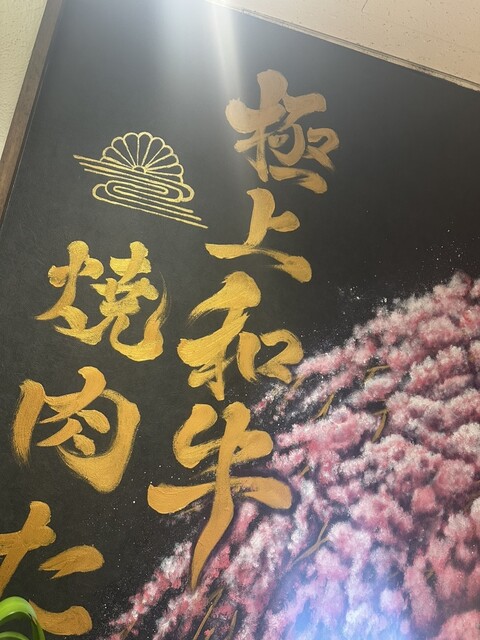 極上和牛
焼肉た